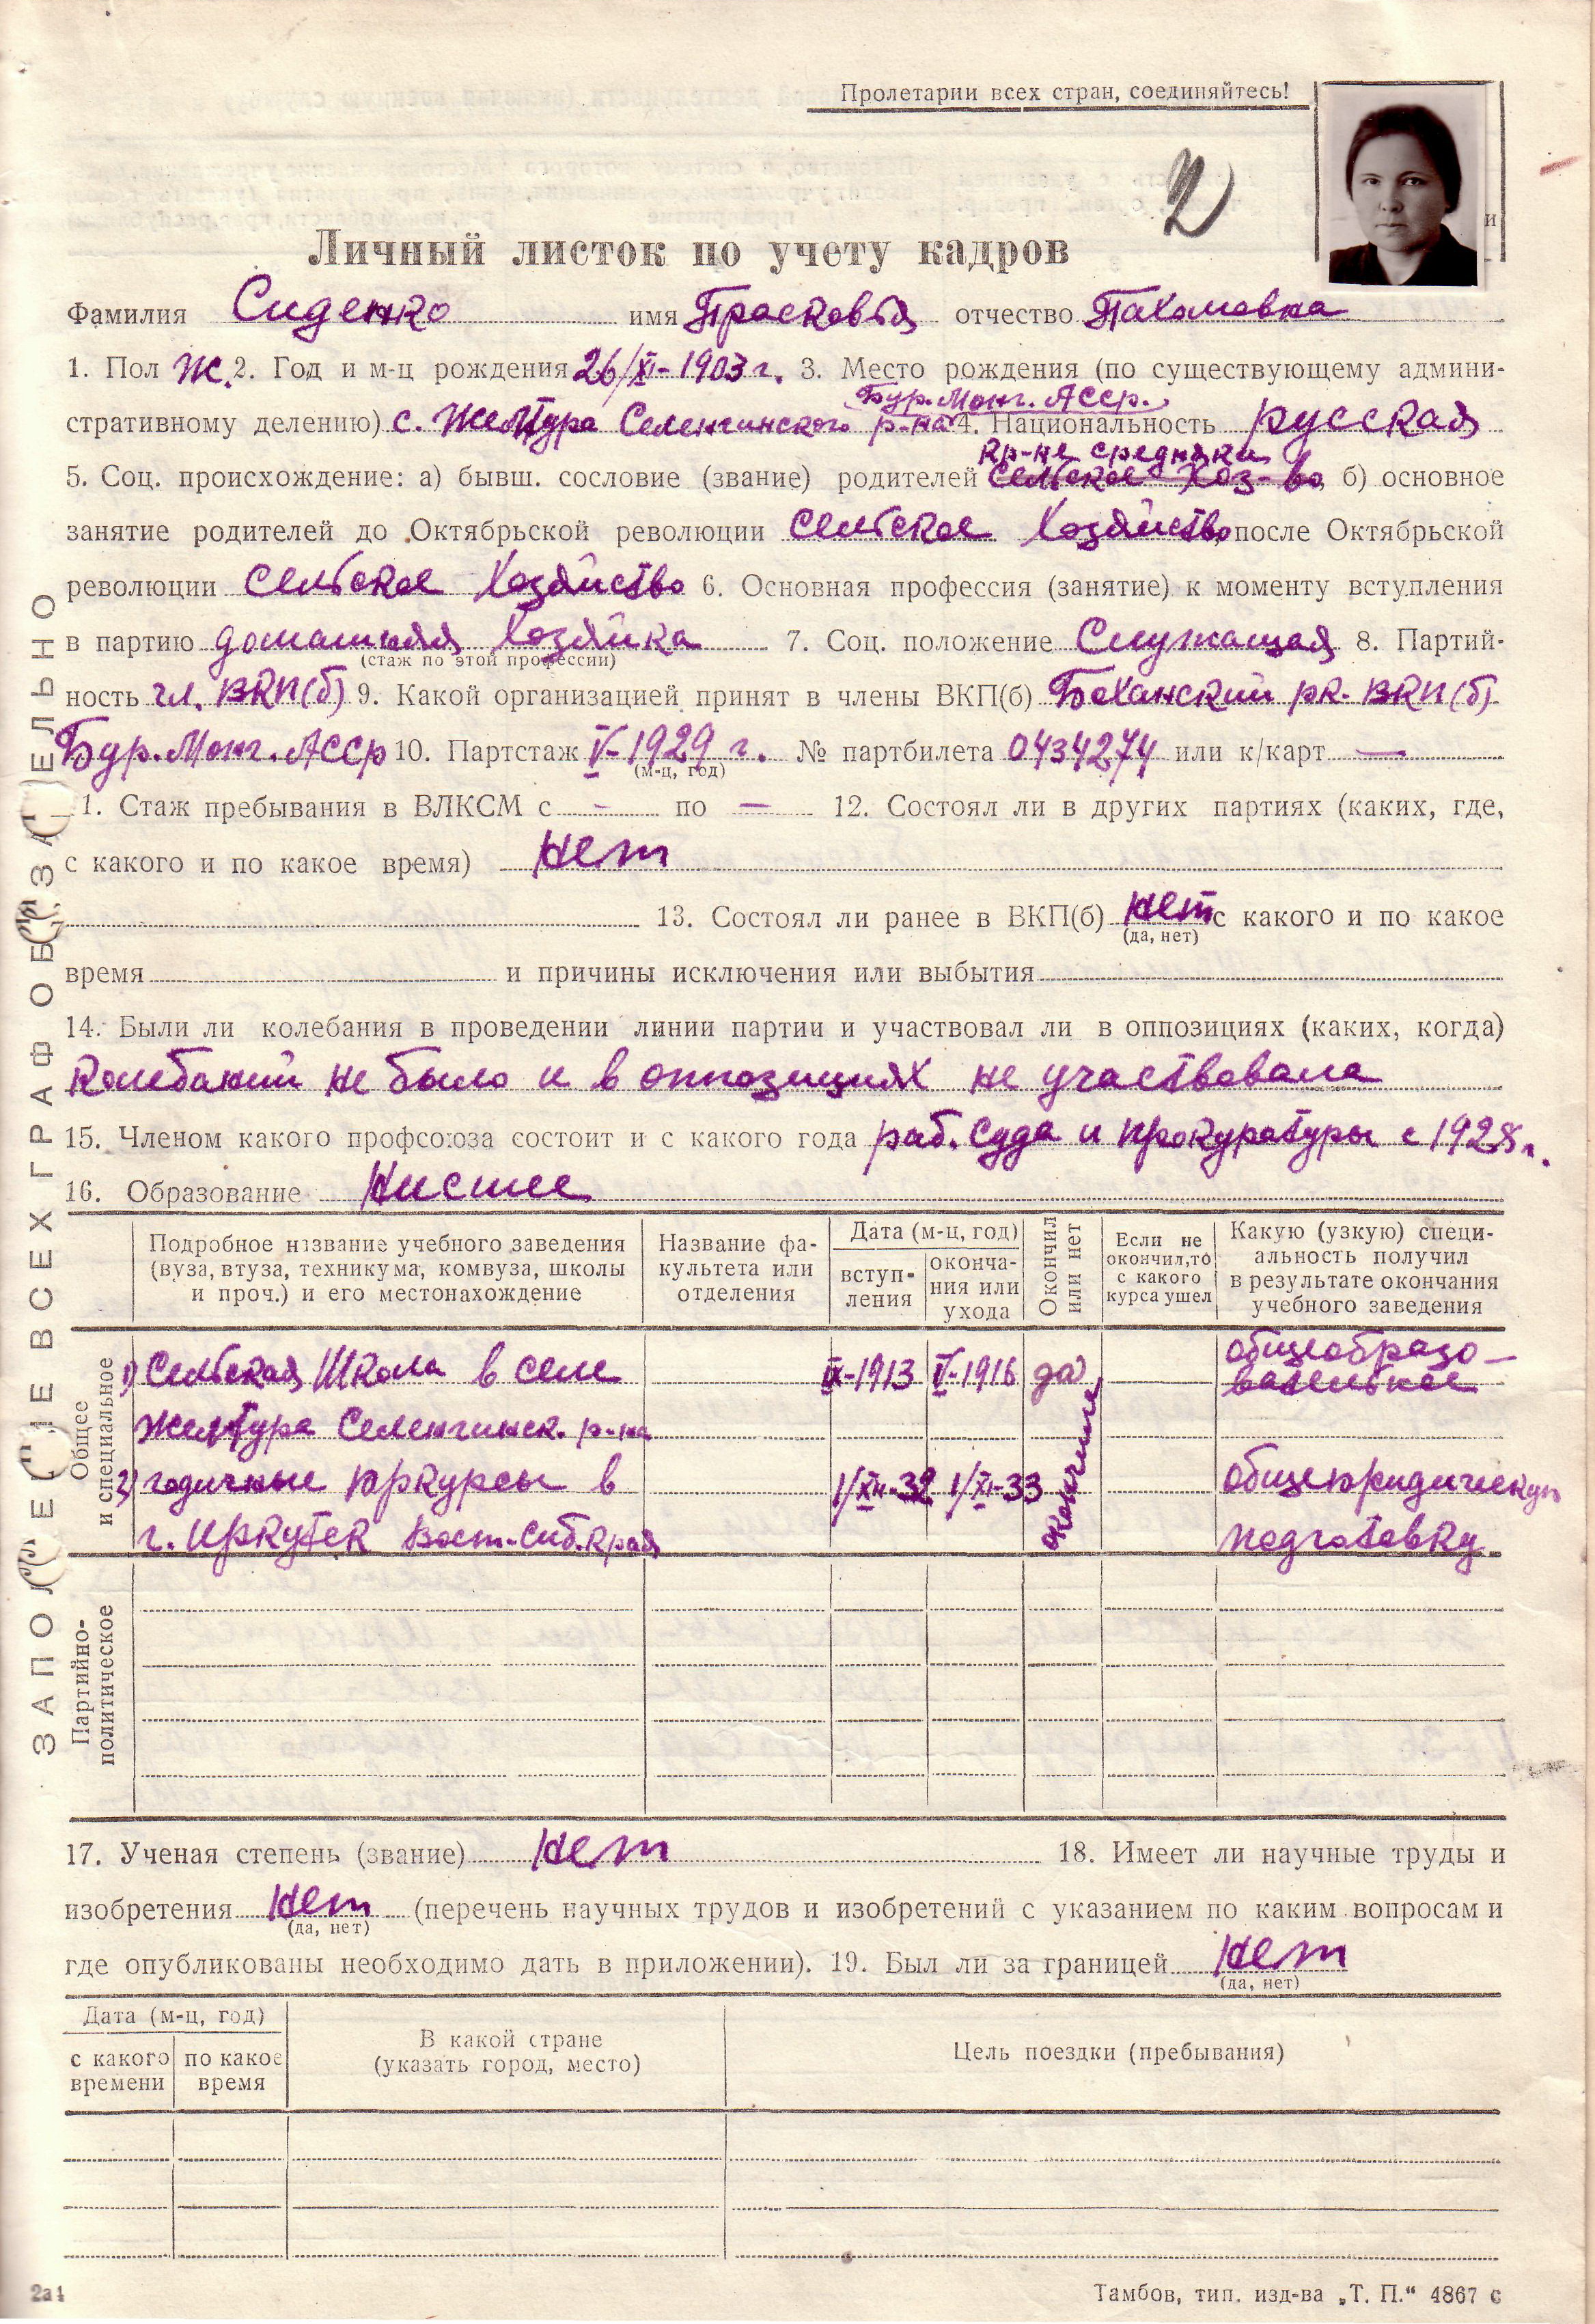 Пролетарии всех стран, соединяйтесь!
2
и
Личный листок по учету кадров
Фамилия Сиденко имя Прасковья отчество Пахомовна
1. Пол Ж. 2. Год и м-ц рождения 26/XI-1903 г. 3. Место рождения (по существующему админи-
Бур.Монг. АССР.
стративному делению) с. Желтура Селенгинского р-на 4. Национальность русская
кр-не средняки
5. Соц. происхождение: а) бывш. сословие (звание) родителей сельское хоз-во, б) основное
занятие родителей до Октябрьской революции сельское хозяйство, после Октябрьской
революции сельское хозяйство 6. Основная профессия (занятие) к моменту вступления
в партию домашняя хозяйка 7. Соц. положение Служащая 8. Партий-
(стаж по этой профессии)
ность чл. ВКП(б) 9. Какой организацией принят в члены ВКП(б) Боханский рк. ВКП(б)
Бур.Монг.АССР 10. Партстаж V-1929 г. № партбилета 0434274 или к/карт —
(м-ц, год)
1. Стаж пребывания в ВЛКСМ с - по — 12. Состоял ли в других партиях (каких, где,
с какого и по какое время) Нет
13. Состоял ли ранее в ВКП(б) нет с какого и по какое
(да, нет)
время и причины исключения или выбытия
14. Были ли колебания в проведении линии партии и участвовал ли в оппозициях (каких, когда)
колебаний не было и в оппозициях не участвовала
15. Членом какого профсоюза состоит и с какого года раб. суда и прокуратуры с 1928 г.
16. Образование Низшее
Подробное название учебного заведения (вуза, втуза, техникума, комвуза, школы и проч.) и его местонахождение
Название факультета или отделения
Дата (м-ц, год)
вступ-
ления
оконча-
ния или
ухода
Окончил
или нет
Если не
окончил, то
с какого
курса ушел
Какую (узкую) специ-
альность получил
в результате окончания
учебного заведения
Общее
и специальное
1) Сельская школа в селе IX-1913 V-1916 да общеобразо-
вательное
Желтура Селенгинск. р-на
2) годичные юркурсы в 1/XII-32 1/XI-33 окончила общеюридическую
г. Иркутск Вост.-Сиб.края подготовку
Партийно-
политическое
17. Ученая степень (звание) Нет 18. Имеет ли научные труды и
изобретения Нет (перечень научных трудов и изобретений с указанием по каким вопросам и
(да, нет)
где опубликованы необходимо дать в приложении). 19. Был ли за границей Нет
(да, нет)
Дата (м-ц, год)
с какого
времени
по какое
время
В какой стране
(указать город, место)
Цель поездки (пребывания)
2а4
Тамбов, тип. изд-ва „Т. П.“ 4867 с